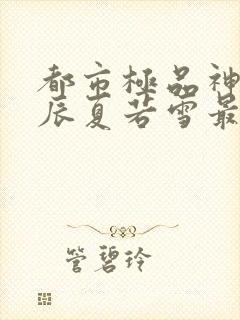 都市極品神
辰夏若雪最
管碧玲